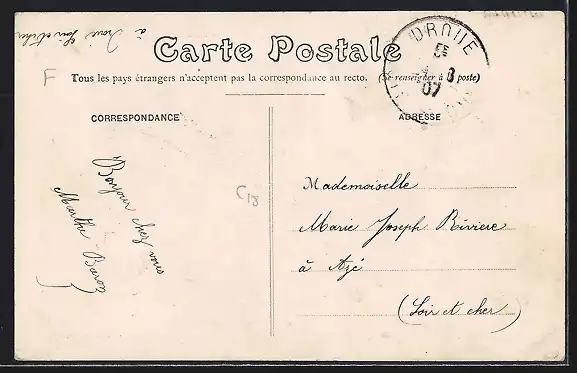 à Droué Loir et cher
Carte Postale
F
Tous les pays étrangers n'acceptent pas la correspondance au recto. (Se renseigner à la poste)
DROUE
E
8
07
CORRESPONDANCE
Bonjour chez vous
Marthe Baron
C18
ADRESSE
Mademoiselle
Marie Joseph Rivière
à Azé
(Loir et cher)